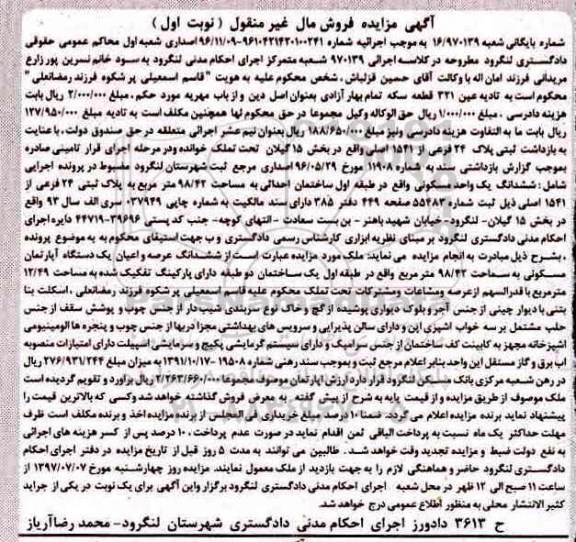 آگهی مزایده فروش مال غیر منقول ( نوبت اول )
شماره بایگانی شعبه ۱۶/۹۷۰۱۳۹ به موجب اجرائیه شماره ۹۶۱۰۴۲۱۴۲۰۱۰۰۲۴۱-۹۶/۱۱/۰۹ اصداری شعبه اول محاکم عمومی حقوقی
دادگستری لنگرود مطروحه در کلاسه اجرائی ۹۷۰۱۳۹ شعبه متمرکز اجرای احکام مدنی لنگرود به سود خانم نسرین پور زارع
مریدانی فرزند امان اله با وکالت آقای حسین قزلباش ، شخص محکوم علیه به هویت " قاسم اسمعیلی پر شکوه فرزند رمضانعلی "
محکوم است به تادیه عین ۳۲۱ قطعه سکه تمام بهار آزادی بعنوان اصل دین و از باب مهریه مورد حکم ، مبلغ ۲/۰۰۰/۰۰۰ ریال بابت
هزینه دادرسی ، مبلغ ۱/۰۰۰/۰۰۰ ریال حق الوکاله وکیل مجموعا در حق محکوم لها همچنین مکلف است به تادیه مبلغ ۱۲۷/۹۵۰/۰۰۰
ریال بابت ما به التفاوت هزینه دادرسی ونیز مبلغ ۱۸۸/۶۵۰/۰۰۰ ریال بعنوان نیم عشر اجرائی متعلقه در حق صندوق دولت ، با عنایت
به بازداشت ثبتی پلاک ۲۴ فرعی از ۱۵۴۱ اصلی واقع در بخش ۱۵ گیلان تحت تملک خوانده ودر مرحله اجرای قرار تامینی صادره
بموجب گزارش بازداشتی سند به شماره ۱۱۹۰۸ مورخ ۹۶/۰۵/۲۹ اصداری مرجع ثبت شهرستان لنگرود مضبوط در پرونده اجرایی
شامل : ششدانگ یک واحد مسکونی واقع در طبقه اول ساختمان احداثی به مساحت ۹۸/۴۲ متر مربع به پلاک ثبتی ۲۴ فرعی از
۱۵۴۱ اصلی ذیل ثبت شماره ۵۵۴۸۳ صفحه ۴۴۹ دفتر ۳۸۵ دارای سند مالکیت به شماره چاپی ۰۳۷۹۴۹ سری الف سال ۹۳ واقع
در بخش ۱۵ گیلان- لنگرود- خیابان شهید باهنر - بن بست سعادت - انتهای کوچه- جنب کد پستی ۳۹۶۹۶-۴۴۷۱۹ دایره اجرای
احکام مدنی دادگستری لنگرود بر مبنای نظریه ابزاری کارشناس رسمی دادگستری و ب جهت استیفای محکوم به به موضوع پرونده
، بشرح ذیل مبادرت به انجام مزایده می نماید: ملک مورد مزایده عبارت است از ششدانگ عرصه و اعیان یک دستگاه آپارتمان
مسکونی به مساحت ۹۸/۴۲ متر مربع واقع در طبقه اول یک ساختمان دو طبقه دارای پارکینگ تفکیک شده به مساحت ۱۲/۴۹
مترمربع با قدرالسهم از عرصه ومشاعات ومشترکات تحت تملک محکوم علیه قاسم اسمعیلی پر شکوه فرزند رمضانعلی ، اسکلت بنا
بتنی با دیوار چینی از جنس آجر و بلوک دیواری پوشیده از گچ و خاک نوع سربندی شیب دار از جنس چوب و پوشش سقف از جنس
حلب مشتمل بر سه خواب اشپزی اپن و دارای سالن پذیرایی و سرویس های بهداشتی مجزا دربها از جنس چوب و پنجره ها الومینیومی
اشپزخانه مجهز به کابینت کف ساختمان از جنس سرامیک و دارای سیستم گرمایشی پکیج و سرمایشی اسپیلت دارای امتیازات منصوبه
اب برق و گاز مستقل این واحد بنابر اعلام مرجع ثبت و بموجب سند رهنی شماره ۱۹۵۰۸ -۱۳۹۱/۱۰/۱۷ به میزان مبلغ ۲۷۶/۹۳۱/۲۴۴ ریال
در رهن شعبه مرکزی بانک مسکن لنگرود قرار دارد ارزش آپارتمان موصوف مجموعا ۱/۲۶۳/۶۶۰/۰۰۰ ریال براورد و تقویم گردیده است
ملک موصوف از طریق مزایده و از قیمت پایه به شرح از پیش گفته در معرض فروش گذاشته خواهد شد وکسی که بالاترین قیمت را
پیشنهاد نماید برنده مزایده اعلام می گردد. ضمنا ۱۰ درصد مبلغ خریداری فی المجلس از برنده مزایده اخذ و برنده مکلف است ظرف
مهلت حداکثر یک ماه نسبت به پرداخت الباقی ثمن اقدام نماید در صورت عدم پرداخت ، ۱۰ درصد پس از کسر هزینه های اجرائی
به نفع دولت ضبط و مزایده تجدید وقت خواهد شد . طالبین می توانند به مدت ۵ روز قبل از تاریخ مزایده در دفتر اجرای احکام
دادگستری لنگرود حاضر و هماهنگی لازم را به جهت بازدید از ملک معمول نمایند. مزایده روز چهارشنبه مورخ ۱۳۹۷/۰۷/۰۷ از
ساعت ۱۱ صبح الی ۱۲ ظهر در محل شعبه اجرای احکام مدنی دادگستری لنگرود برگزار واین آگهی برای یک نوبت در یکی از جراید
کثیر الانتشار محلی به منظور اطلاع عمومی درج خواهد شد.
ح ۳۶۱۳ دادورز اجرای احکام مدنی دادگستری شهرستان لنگرود- محمد رضا آریاز